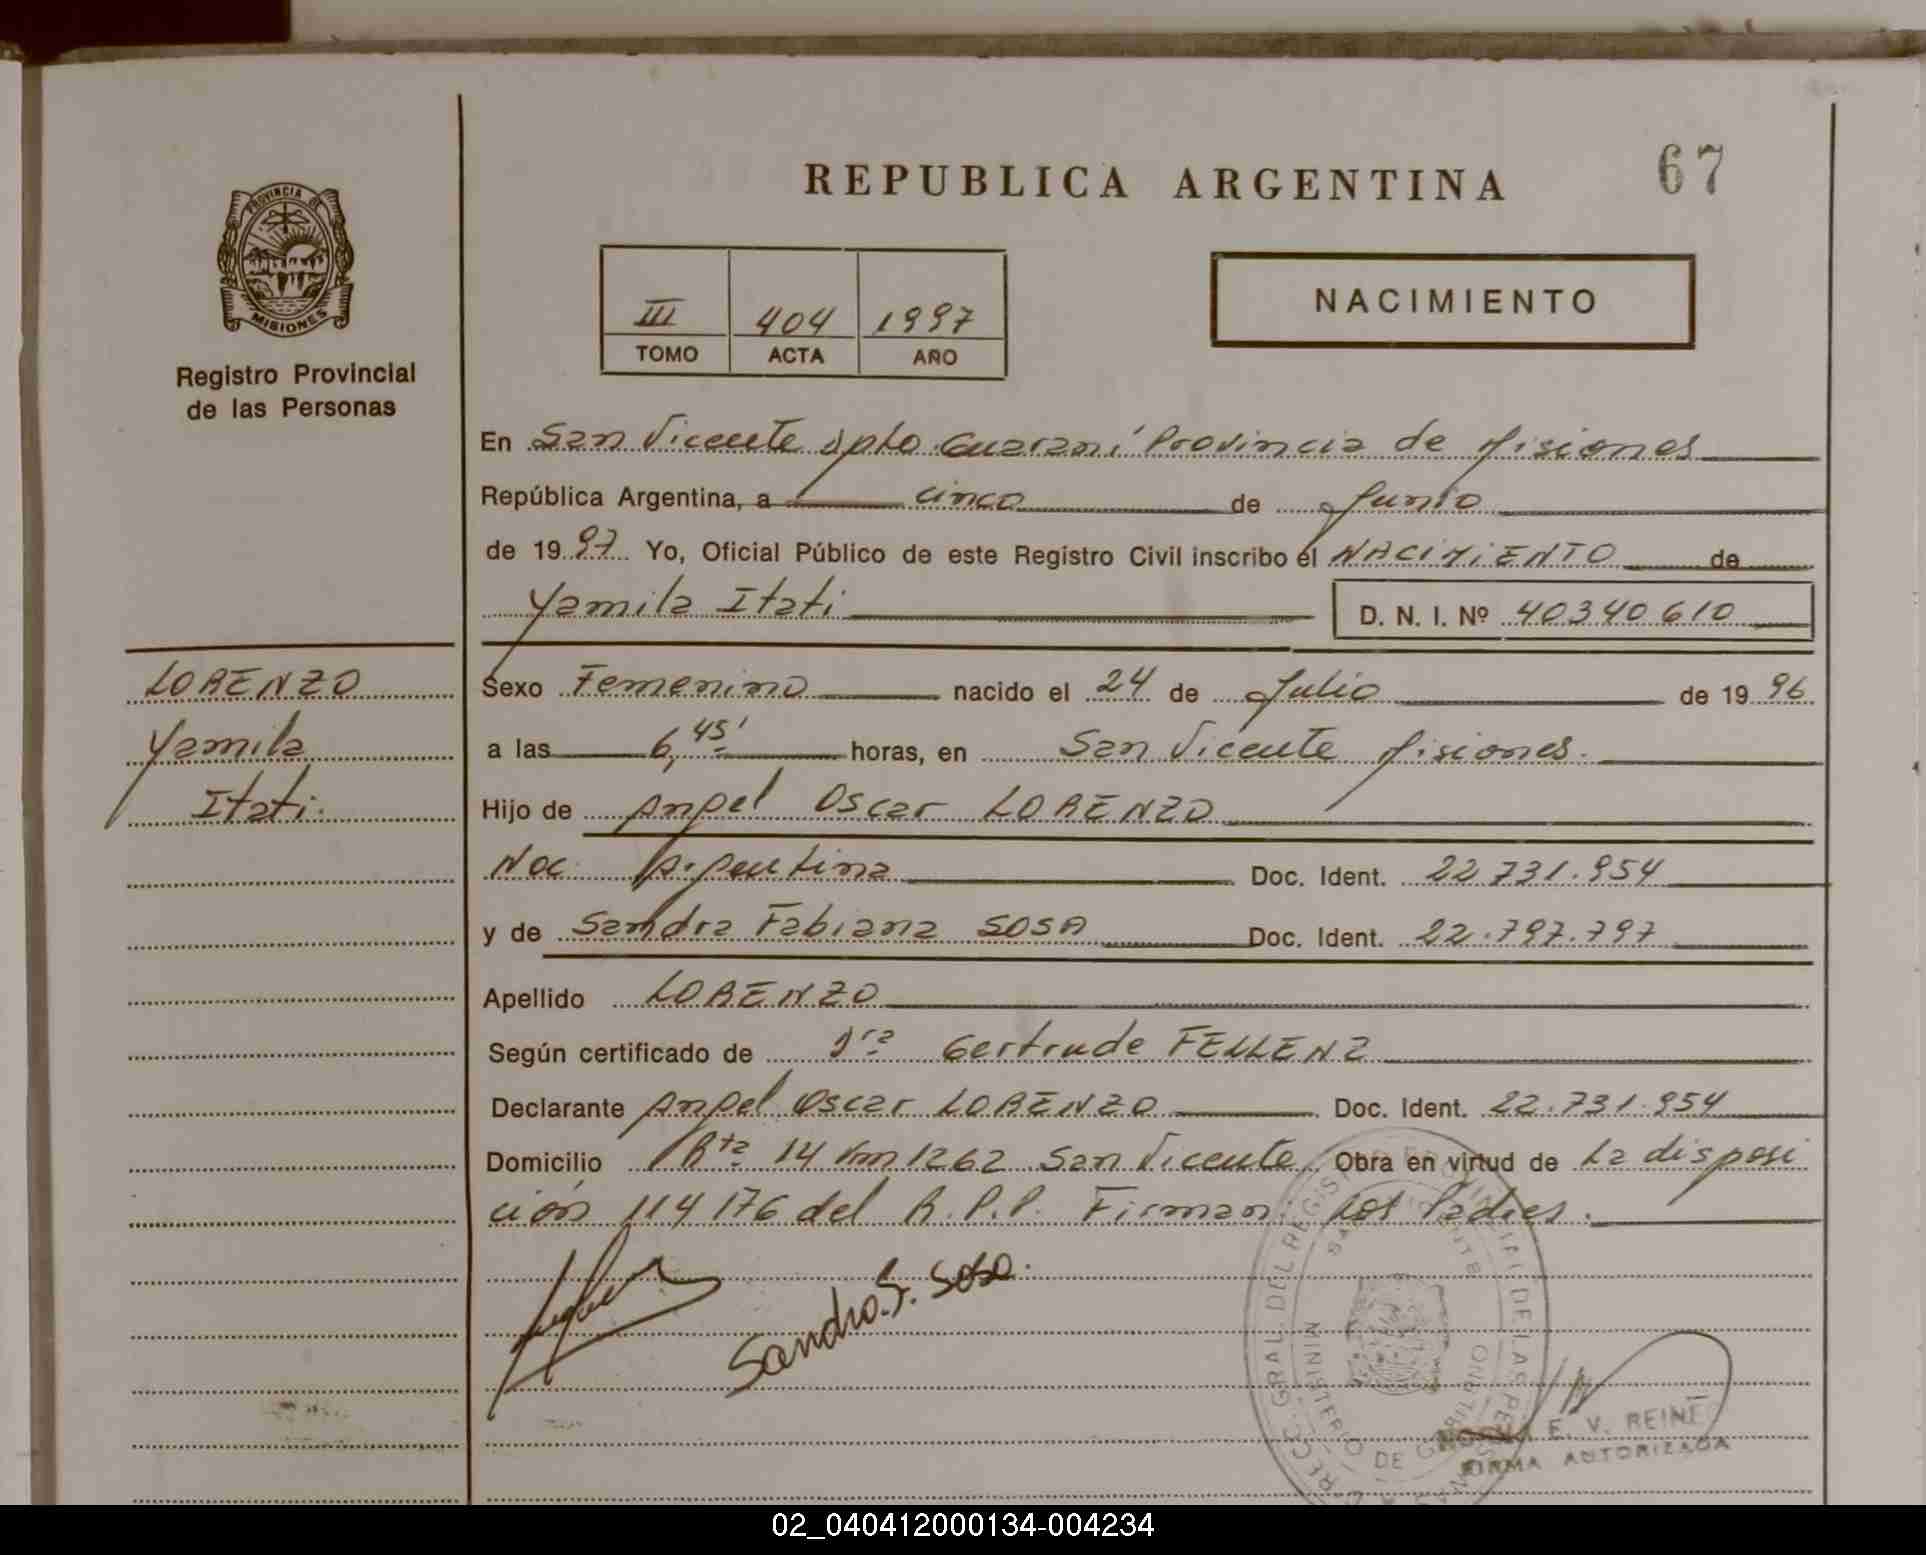 REPUBLICA ARGENTINA
67
PROVINCIA DE
MISIONES
Registro Provincial
de las Personas
III 404 1997
TOMO ACTA AÑO
NACIMIENTO
En San Vicente Dpto. Guaraní Provincia de Misiones
República Argentina, a cinco de Junio
de 1997 Yo, Oficial Público de este Registro Civil inscribo el NACIMIENTO de
Yamila Itati D. N. I. Nº 40340610
LORENZO
Yamila
Itati.
Sexo Femenino nacido el 24 de Julio de 1996
a las 6,45' horas, en San Vicente Misiones.
Hijo de Angel Oscar LORENZO
Nac. Argentina Doc. Ident. 22.731.954
y de Sandra Fabiana SOSA Doc. Ident. 22.797.797
Apellido LORENZO
Según certificado de Dra Gertrude FELLENZ
Declarante Angel Oscar LORENZO Doc. Ident. 22.731.954
Domicilio Rta 14 Km 1262 San Vicente Obra en virtud de La disposi
ción 114/76 del R.P.P. Firman los Padres.
Sandra.F. Sosa.
E. V. REINE
FIRMA AUTORIZADA
02_040412000134-004234